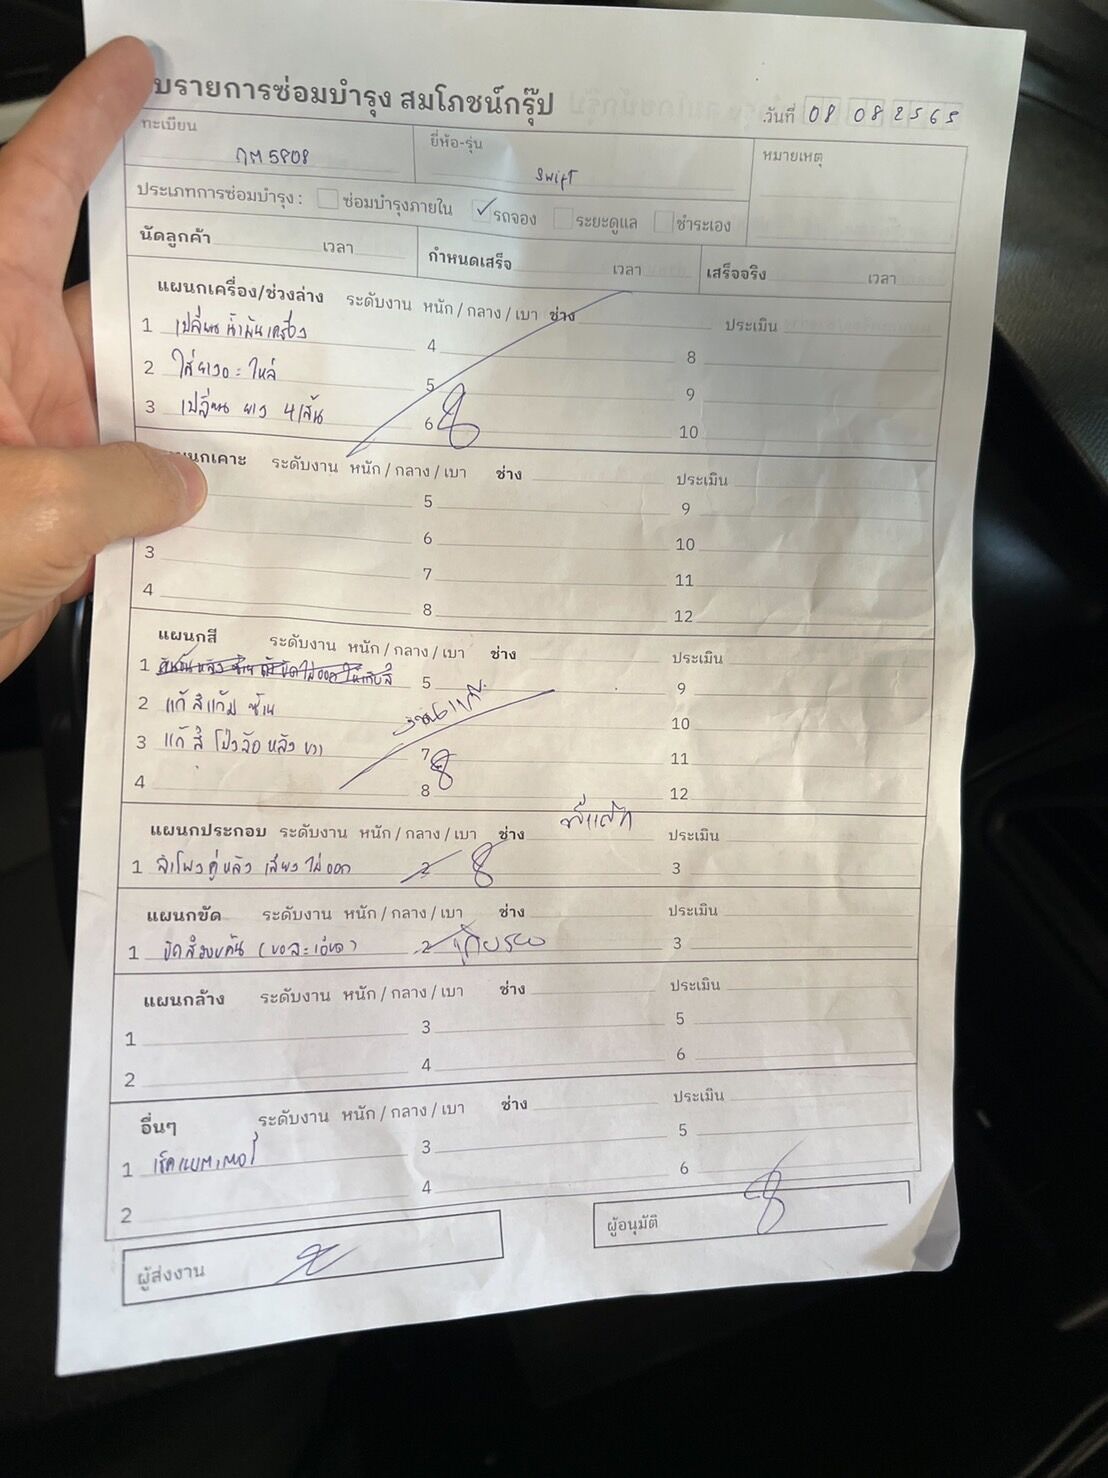 บรายการซ่อมบำรุง สมโภชน์กรุ๊ป
วันที่ 08 08 2565
ทะเบียน กM5808 ยี่ห้อ-รุ่น Swift หมายเหตุ
ประเภทการซ่อมบำรุง : ซ่อมบำรุงภายใน ✓ รถจอง ระยะดูแล ชำระเอง
นัดลูกค้า เวลา กำหนดเสร็จ เวลา เสร็จจริง เวลา
แผนกเครื่อง/ช่วงล่าง ระดับงาน หนัก / กลาง / เบา ช่าง ประเมิน
1 เปลี่ยนน้ำมันเครื่อง 4 8
2 ใส่ อะไหล่ 5 9
3 เปลี่ยน ยาง 4 เส้น 6 10
นกเคาะ ระดับงาน หนัก / กลาง / เบา ช่าง ประเมิน
5 9
6 10
3 7 11
4 8 12
แผนกสี ระดับงาน หนัก / กลาง / เบา ช่าง ประเมิน
1 5 9
2 แก้สีแก้ม ซ้าย 10
3 แก้สี โป่งล้อ หลัง ขวา 7 11
4 8 12
แผนกประกอบ ระดับงาน หนัก / กลาง / เบา ช่าง ประเมิน
1 ลำโพงคู่หลัง เสียงไม่ออก 2 3
แผนกขัด ระดับงาน หนัก / กลาง / เบา ช่าง ประเมิน
1 ขัดสีรอบคัน (ขอละเอียด) 2 3
แผนกล้าง ระดับงาน หนัก / กลาง / เบา ช่าง ประเมิน
1 3 5
2 4 6
อื่นๆ ระดับงาน หนัก / กลาง / เบา ช่าง ประเมิน
1 เช็คแบตเตอรี่ 3 5
2 4 6
ผู้ส่งงาน ผู้อนุมัติ